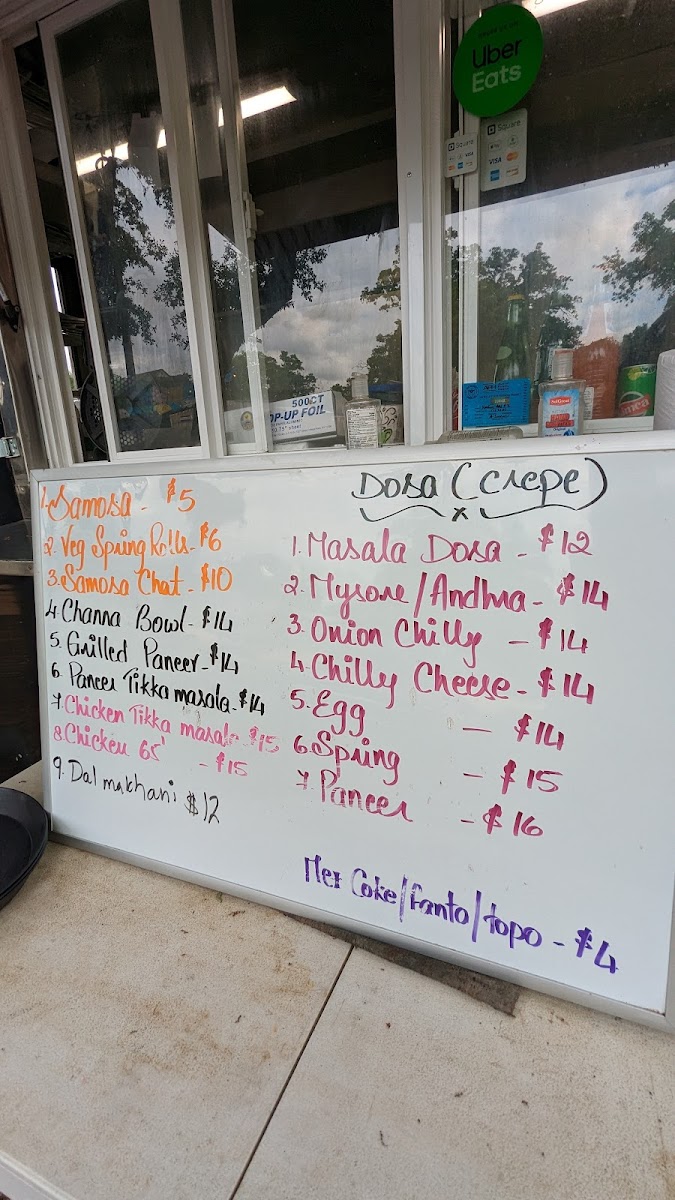 Uber
Eats
Square
Square
VISA
VISA
500CT
OP-UP FOIL
1. Samosa - $5
2. Veg Spring Rolls - $6
3. Samosa Chat - $10
4. Channa Bowl - $14
5. Grilled Paneer - $14
6. Paneer Tikka masala - $14
7. Chicken Tikka masala - $15
8. Chicken 65 - $15
9. Dal makhani $12
Dosa (Crepe)
x
1. Masala Dosa - $12
2. Mysore/Andhra - $14
3. Onion Chilly - $14
4. Chilly Cheese - $14
5. Egg - $14
6. Spring - $15
7. Paneer - $16
Mex Coke/fanto/topo - $4